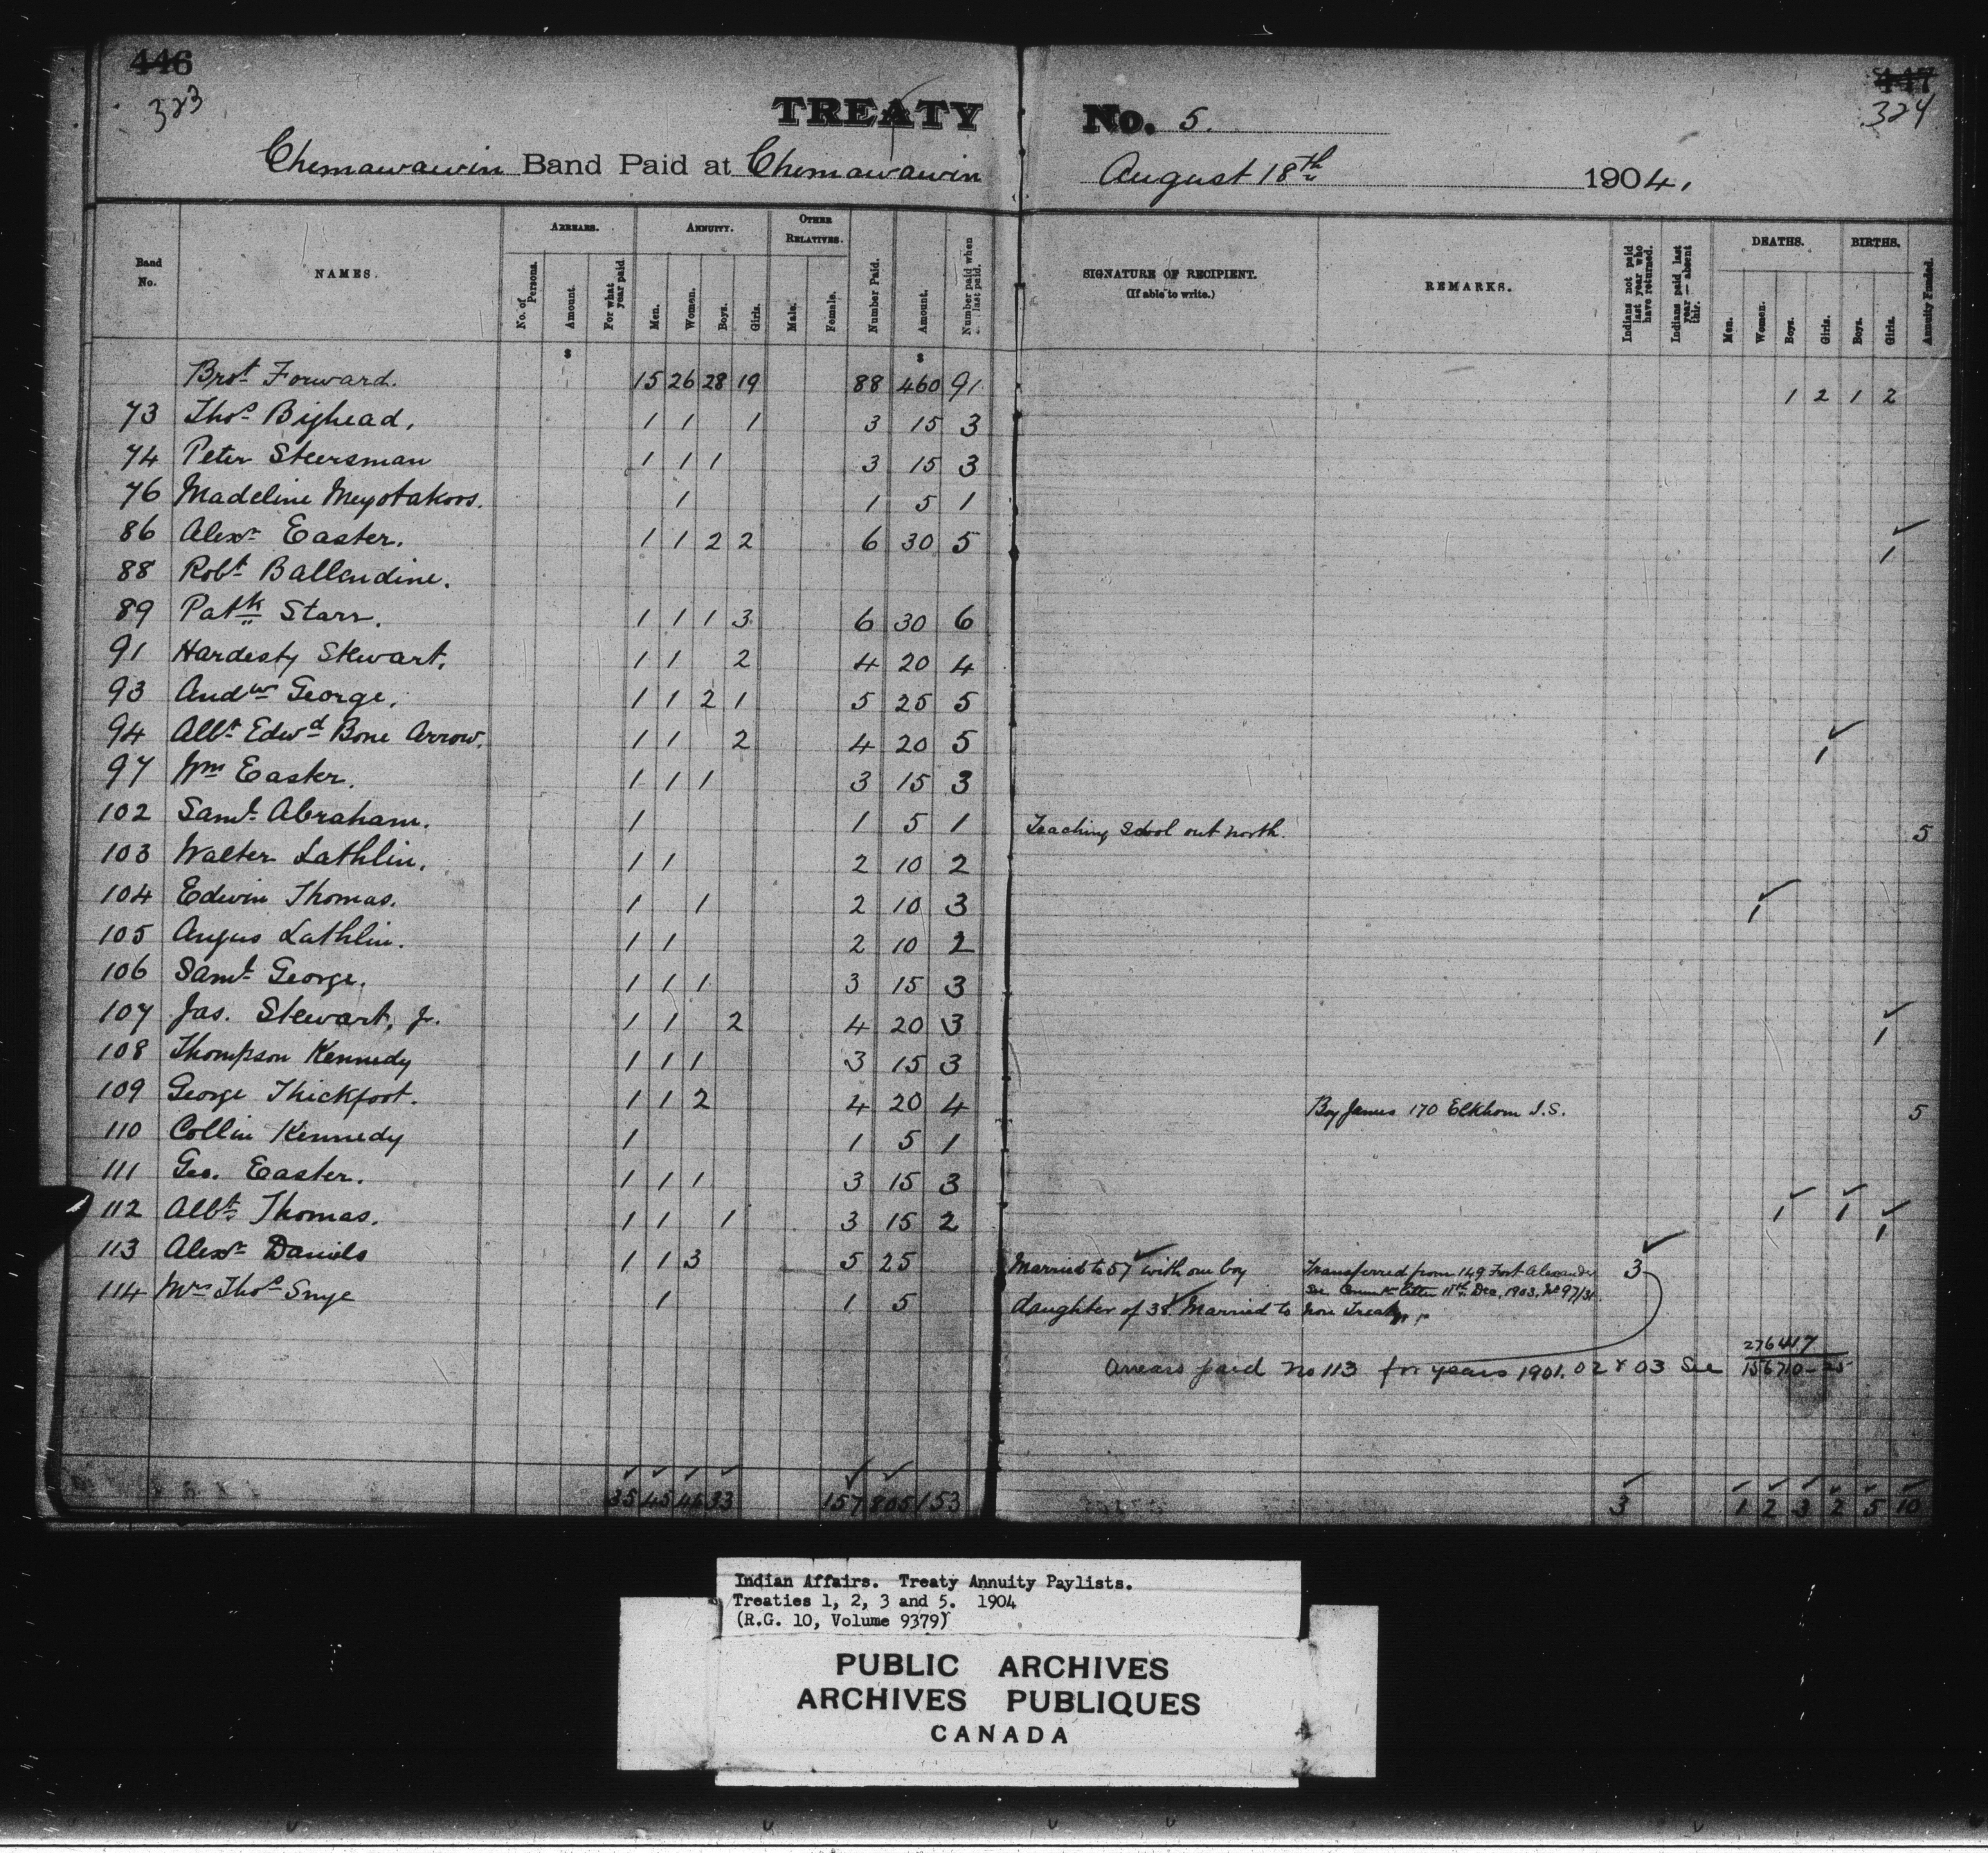 446
323
TREATY No. 5.
447
324
Chemawawin Band Paid at Chemawawin August 18th 1904.
Band No.
NAMES.
ARREARS.
No. of Persons.
Amount.
For what year paid.
ANNUITY.
Men.
Women.
Boys.
Girls.
OTHER RELATIVES.
Male.
Female.
Number Paid.
Amount.
Number paid when last paid.
SIGNATURE OF RECIPIENT.
(If able to write.)
REMARKS.
Indians not paid last year who have returned.
Indians paid last year — absent this.
DEATHS.
Men.
Women.
Boys.
Girls.
BIRTHS.
Boys.
Girls.
Annuity Funded.
$ $
Brot Forward. 15 26 28 19 88 460 91 1 2 1 2
73 Thos Bighead. 1 1 1 3 15 3
74 Peter Steersman 1 1 1 3 15 3
76 Madeline Meyotakoos. 1 1 5 1
86 Alexr Easter. 1 1 2 2 6 30 5 1
88 Robt Ballendine.
89 Patk Starr. 1 1 1 3 6 30 6
91 Hardisty Stewart. 1 1 2 4 20 4
93 Andw George. 1 1 2 1 5 25 5
94 Albt Edwd Bone Arrow. 1 1 2 4 20 5 1
97 Wm Easter. 1 1 1 3 15 3
102 Saml Abraham. 1 1 5 1 Teaching School out north. 5
103 Walter Lathlin. 1 1 2 10 2
104 Edwin Thomas. 1 1 2 10 3 1
105 Angus Lathlin. 1 1 2 10 2
106 Saml George. 1 1 1 3 15 3
107 Jas. Stewart, Jr. 1 1 2 4 20 3 1
108 Thompson Kennedy 1 1 1 3 15 3
109 George Thickfoot. 1 1 2 4 20 4 Boy James 170 Elkhorn I.S. 5
110 Collin Kennedy 1 1 5 1
111 Geo. Easter. 1 1 1 3 15 3
112 Albt Thomas. 1 1 1 3 15 2 1 1 1
113 Alexr Daniels 1 1 3 5 25 Married to 57 with one boy Transferred from 149 Fort Alexander 3
See Commr letter 11th Dec, 1903, No 97/31
114 Mrs Thos Snye 1 1 5 daughter of 38. Married to Non Treaty
Arrears paid No 113 for years 1901. 02 & 03 See 276417
156710-25
35 45 46 33 157 805 153 3 1 2 3 2 5 10
Indian Affairs. Treaty Annuity Paylists.
Treaties 1, 2, 3 and 5. 1904
(R.G. 10, Volume 9379)
PUBLIC ARCHIVES
ARCHIVES PUBLIQUES
CANADA